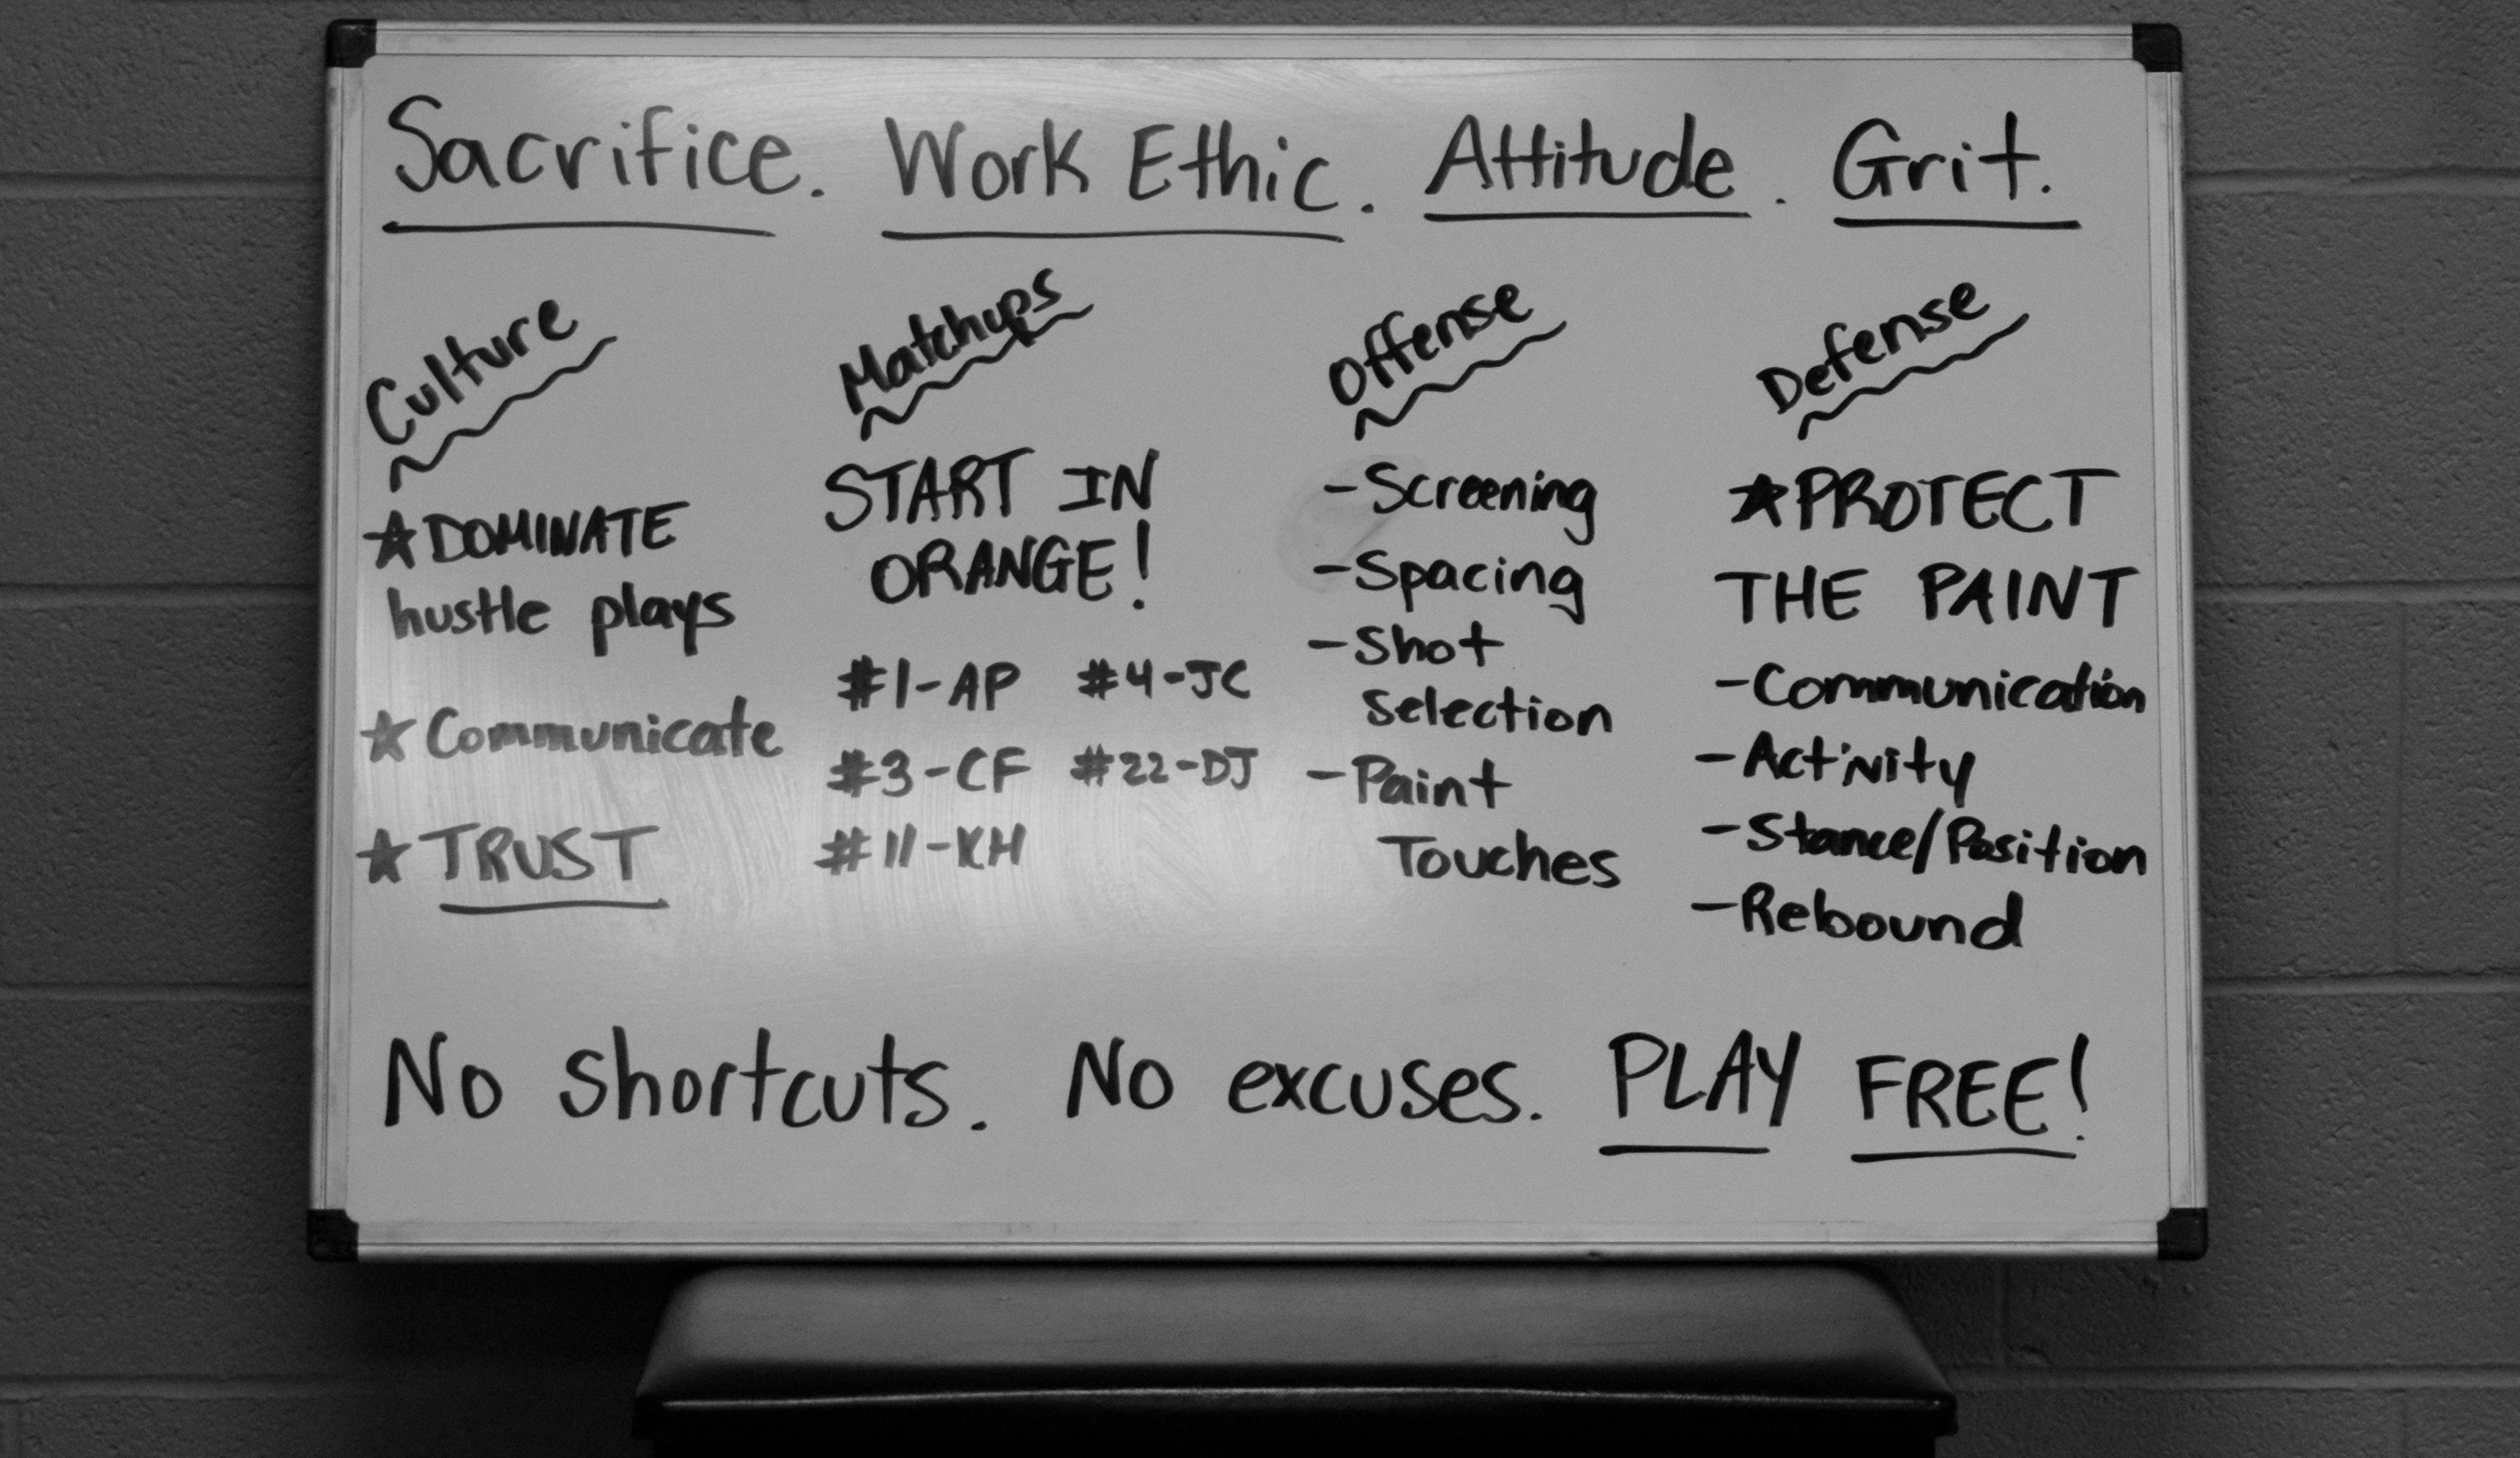 Sacrifice. Work Ethic. Attitude. Grit.
Culture
★ DOMINATE
hustle plays
★ Communicate
★ TRUST
Matchups
START IN
ORANGE!
#1-AP #4-JC
#3-CF #22-DJ
#11-KH
Offense
-Screening
-Spacing
-Shot
Selection
-Paint
Touches
Defense
★PROTECT
THE PAINT
-Communication
-Activity
-Stance/Position
-Rebound
No shortcuts. No excuses. PLAY FREE!